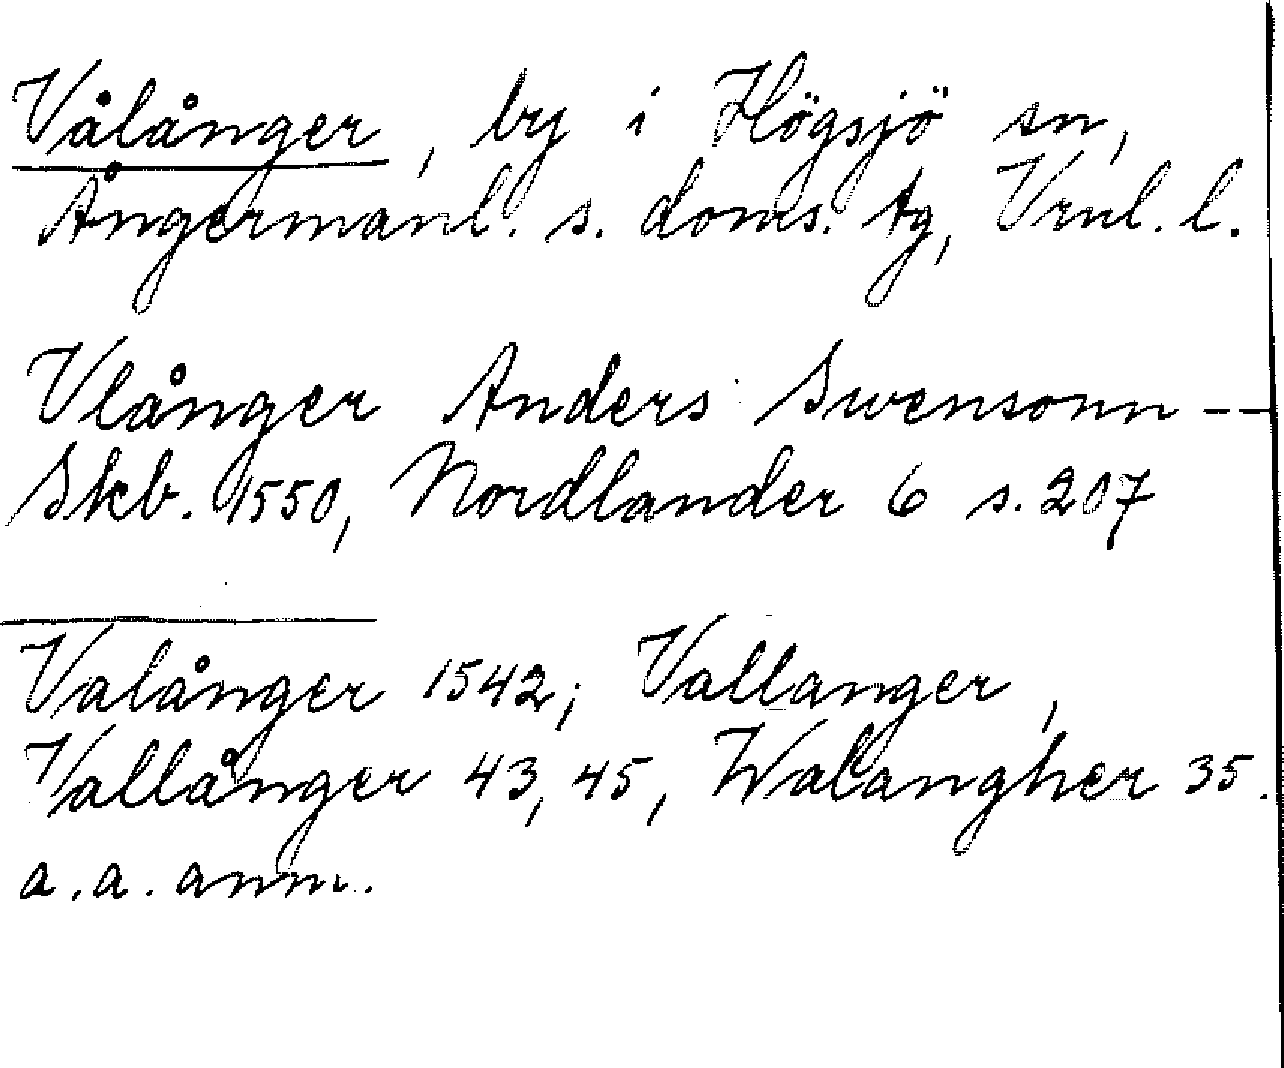 Vålånger, by i Högsjö sn,
Ångermanl. s. doms. tg, Vrnl. l.
Vlånger Anders Swensonn --
Skb. 1550, Nordlander 6 s. 207
Valånger 1542; Vallanger,
Vallånger 43, 45, Walangher 35.
a. a. anm.